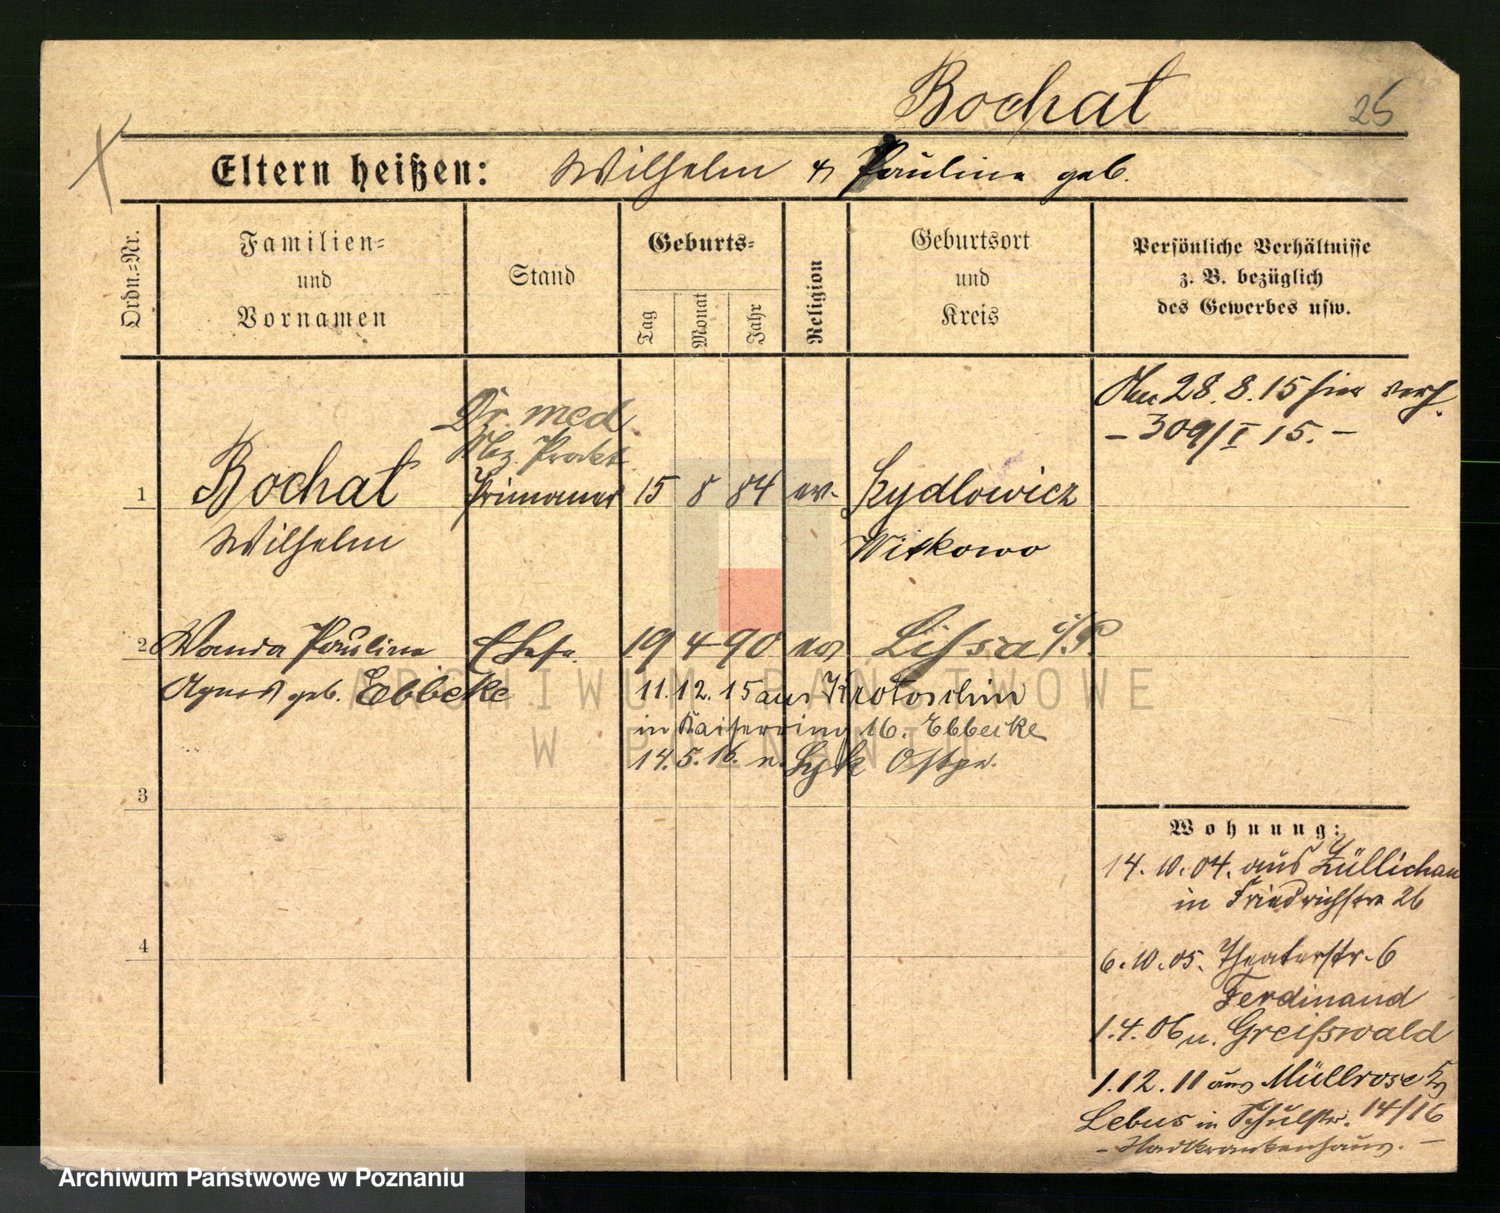 Bochat
25
Eltern heißen: Wilhelm & Pauline geb.
Ordn.=Nr.
Familien=
und
Vornamen
Stand
Geburts=
Tag
Monat
Jahr
Religion
Geburtsort
und
Kreis
Persönliche Verhältnisse
z. B. bezüglich
des Gewerbes usw.
28.8.15 hier verh.
– 309/I 15. –
Dr. med
Prakt
1 Bochat Primaner 15 8 84 ev. Szydlowicz
Wilhelm Witkowo
2 Wanda Pauline Ehefr. 19 4 90 ev Lissa i/P.
Agnes geb. Ebbecke 11.12.15 aus Krotoschin
in Kaiserring 16. Ebbecke
14.5.16. n. Lyk Ostpr.
3
4
Wohnung:
14.10.04. aus Züllichau
in Friedrichstr 26
6.10.05. Theaterstr. 6
Ferdinand
1.4.06 n. Greifswald
1.12.11 aus Müllrose Kr
Lebus in Schulstr. 14/16
– Stadtkrankenhaus. –
ARCHIWUM PAŃSTWOWE
W POZNANIU
Archiwum Państwowe w Poznaniu